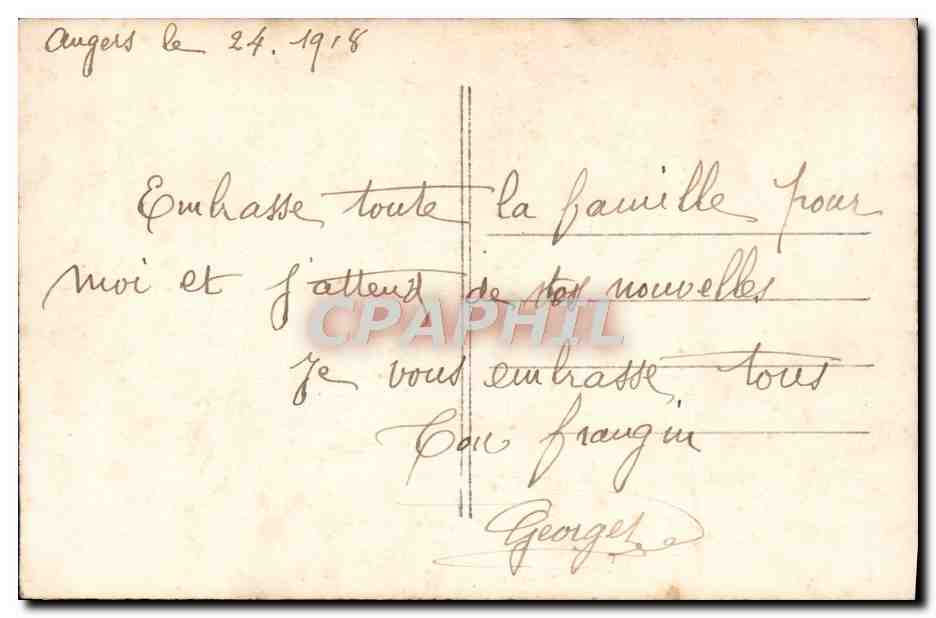 Angers le 24. 1918
Embrasse toute la famille pour
moi et j'attend de tes nouvelles
CPAPHIL
Je vous embrasse tous
Ton frangin
Georges